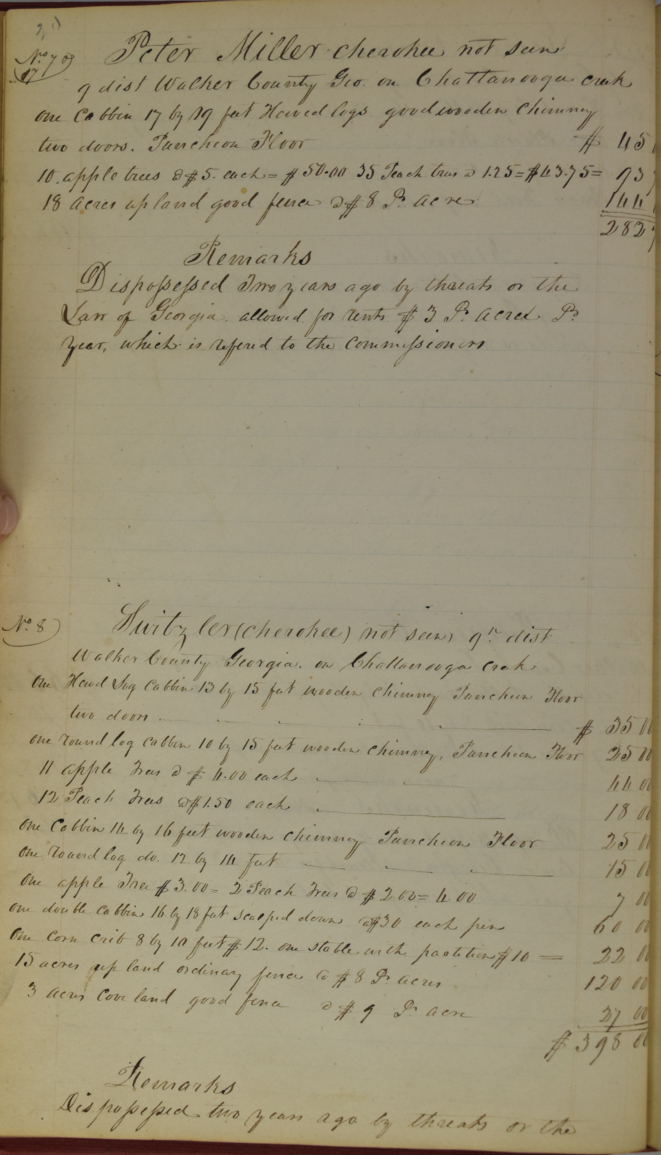 No 7
17
Peter Miller cherokee not seen
9 dist Walker County Geo. on Chattanooga creek
one Cabbin 17 by 19 feet Hewed logs good wooden Chimney
two doors. Puncheon Floor $ 45
10 apple trees @ $5. each = $50.00 35 Peach trees @ 1.25 = $43.75 = 93
18 acres upland good fence @ $8 Pr acre 144
282
Remarks
Dispossessed Two years ago by threats or the
Law of Georgia. allowed for rents $ 3 Pr acre Pr
Year, which is refered to the Commissioners
No 8
Switzler (cherokee) not seen 9th dist
Walker County Georgia. on Chattanooga creek
One Hewd Log Cabbin 13 by 15 feet wooden Chimney Puncheon Floor
two doors $ 35 00
one round log cabbin 10 by 15 feet wooden chimney, Puncheon Floor 25 00
11 apple Trees @ $ 4.00 each 44 00
12 Peach Trees @ $1.50 each 18 00
one Cabbin 14 by 16 feet wooden Chimney Puncheon Floor 25 00
one round log do. 12 by 14 feet 15 00
one apple Tree $3.00 = 2 Peach Trees @ $2.00 = 4.00 7 00
one double Cabbin 16 by 18 feet scalped down @ $30 each pen 60 00
One corn crib 8 by 10 feet $12. one stable with partition $10 = 22 00
15 acres up land ordinary fence @ $8 Pr acre 120 00
3 acres Cove land good fence @ $9 Pr acre 27 00
$ 398 00
Remarks
Dispossessed two years ago by threats or the